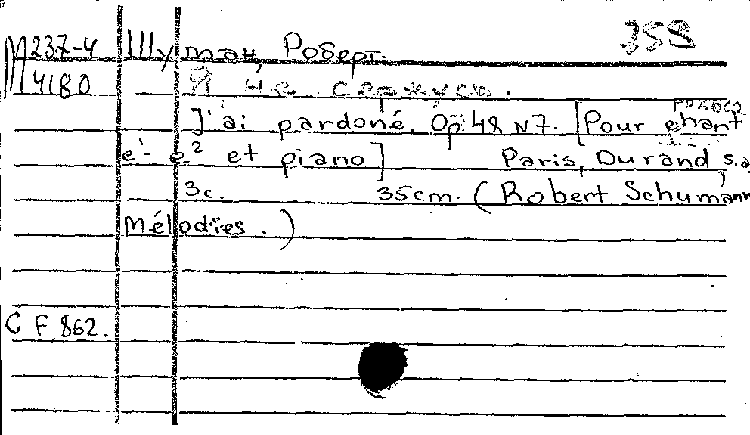 M237-4 Шуман, Роберт. 358
4180 Я не сержусь.
J'ai pardoné. Op. 48 N7. [Pour chant
e'- e² et piano] Paris, Durand s.a.
3c. 35cm. (Robert Schumann
Mélodies.)
C F 862.